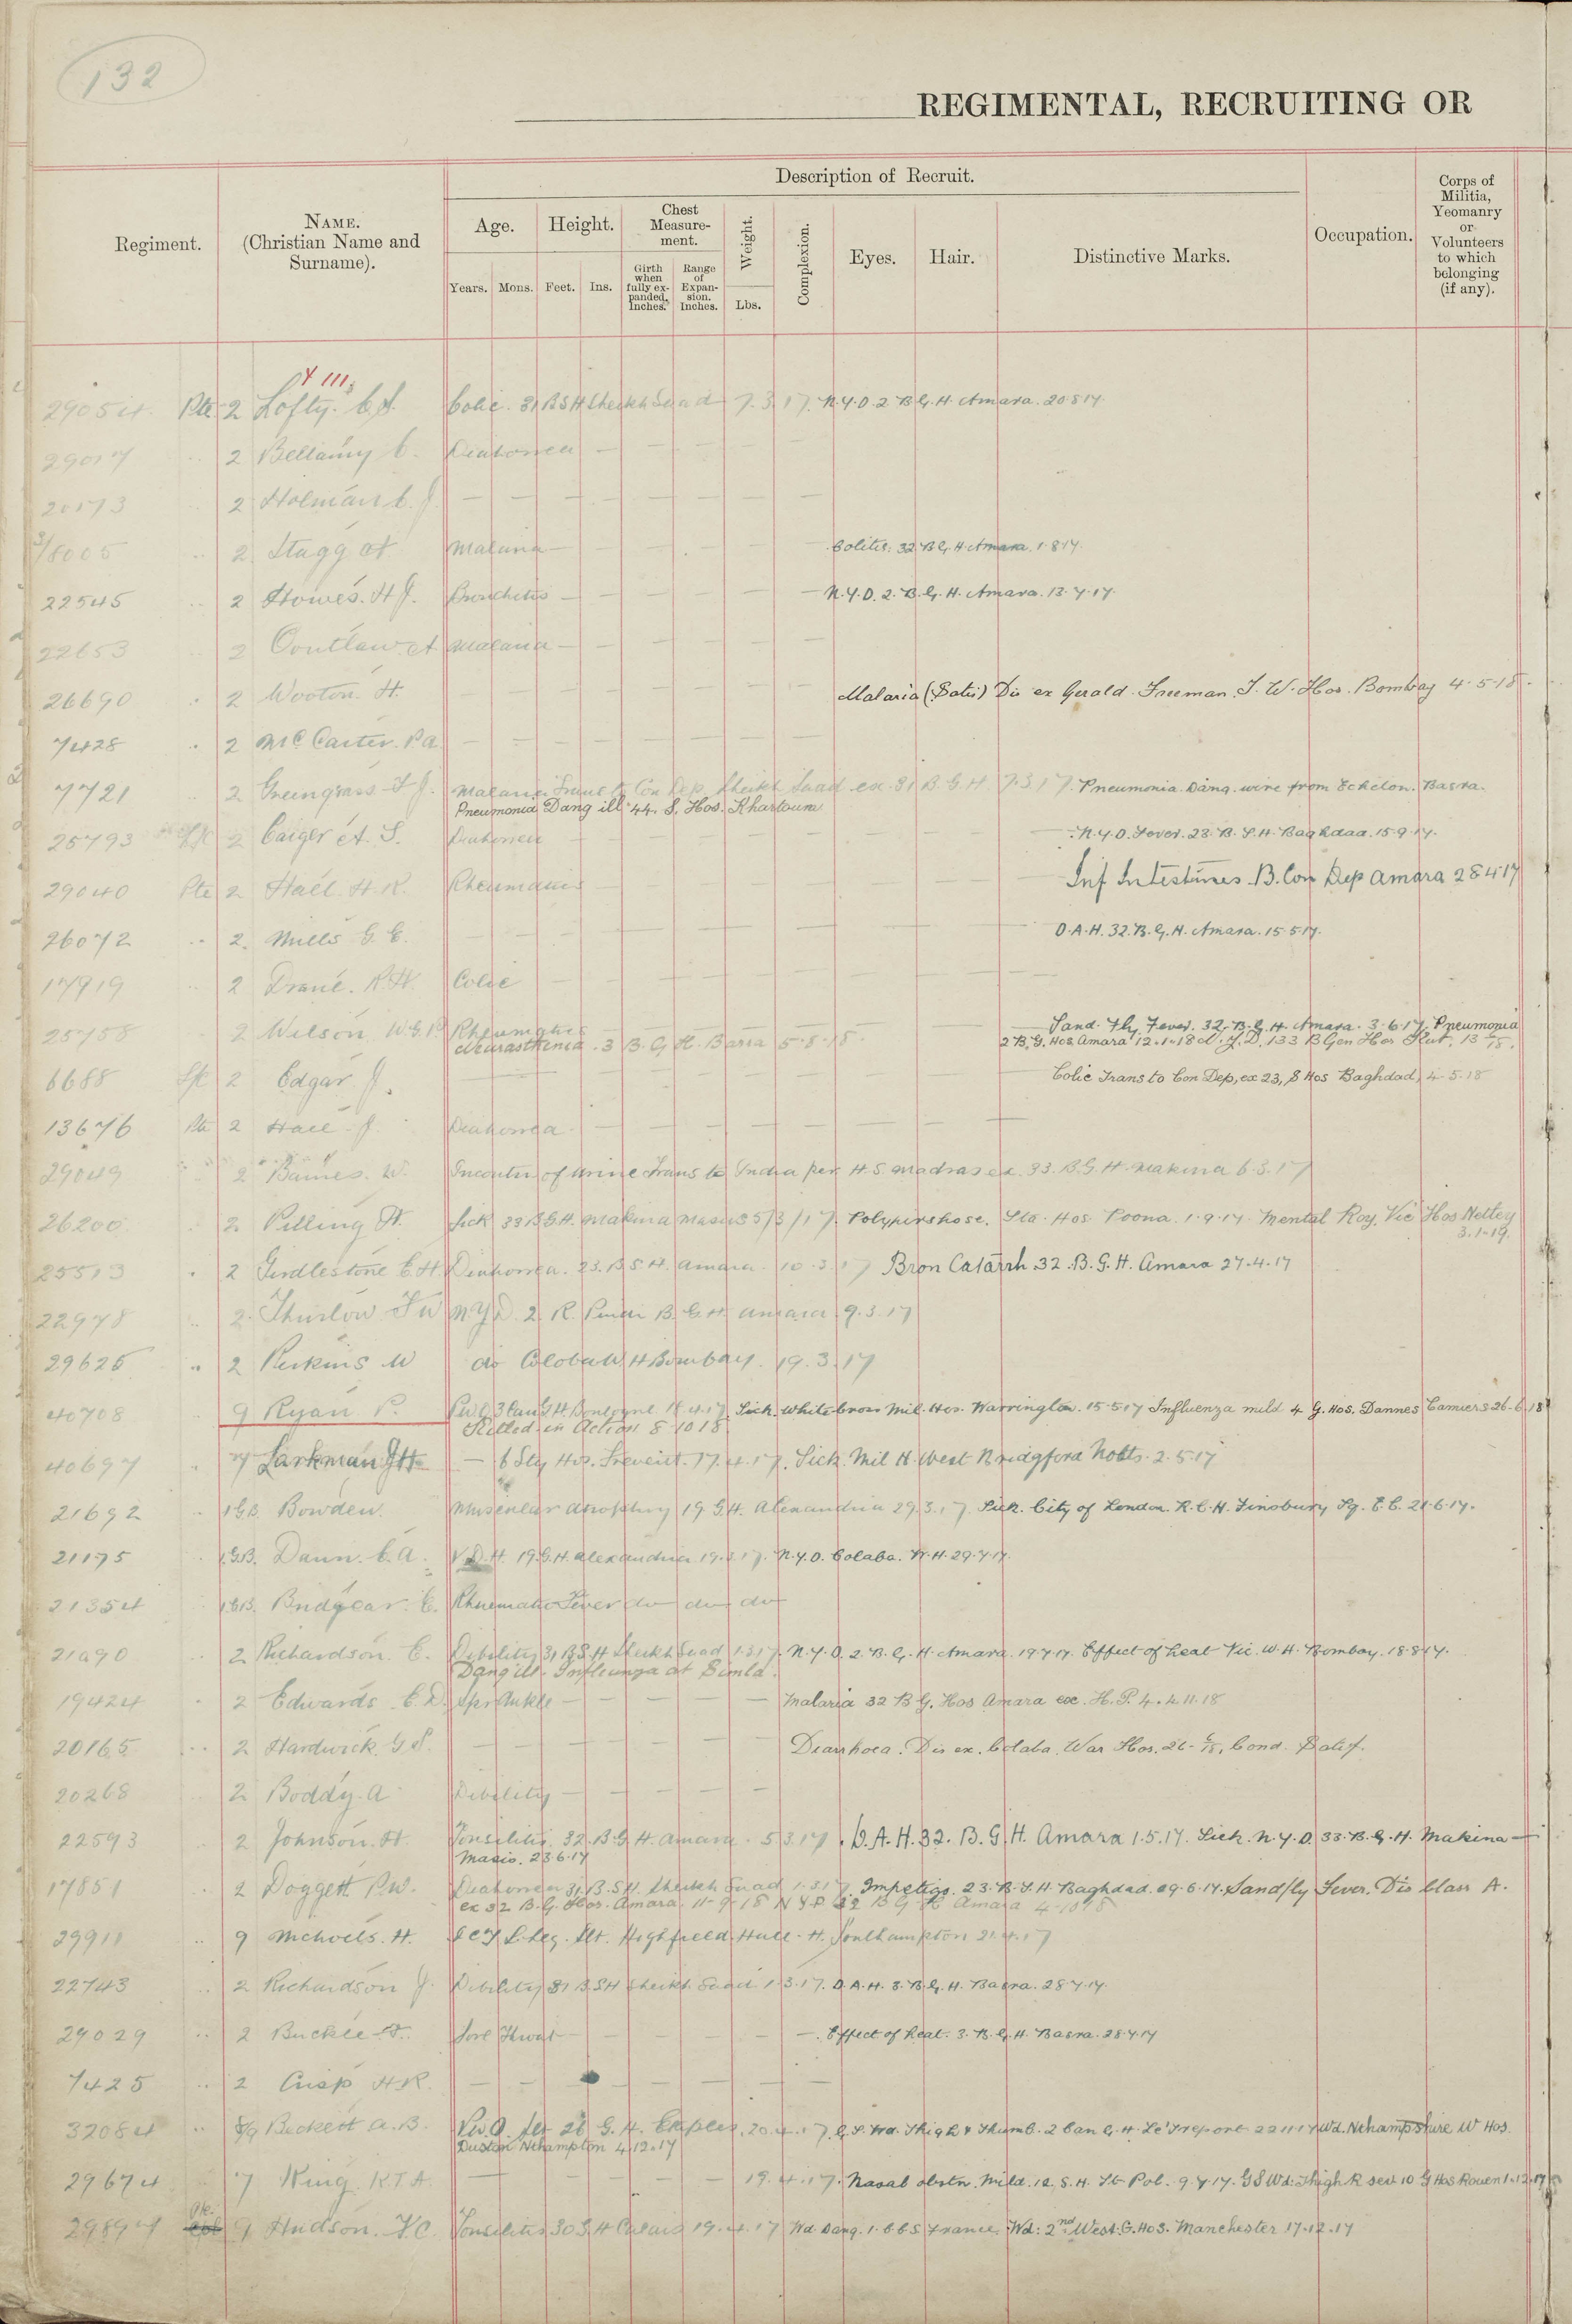 132
REGIMENTAL, RECRUITING OR
Regiment.
NAME. (Christian Name and Surname).
Description of Recruit.
Age.
Years.
Mons.
Height.
Feet.
Ins.
Chest Measure-ment.
Girth when fully ex-panded. Inches.
Range of Expan-sion. Inches.
Weight.
Lbs.
Complexion.
Eyes.
Hair.
Distinctive Marks.
Occupation.
Corps of Militia, Yeomanry or Volunteers to which belonging (if any).
Pte 2 Lofty. Colic. 31 BSH Sheikh Saad 7.3.17. N.Y.D. 2 B.G.H. Amara. 20.8.17
2 Bellamy C. Diahorrea
20173 2 Holman C. J.
3/8005 2 Stagg A Malaria Colitis. 32 B.G.H. Amara. 1.8.17.
22545 2 Howes. H J. Bronchitis N.Y.D. 2. B.G.H. Amara. 13.7.17.
22653 2 Outlaw. A Malaria
26690 2 Wooton. H. Malaria (Satis) Dis ex Gerald Freeman T. W. Hos. Bombay 4-5-18.
7428 2 McCarter. P a
7721 2 Greengrass J. Malaria Trans to Con Dep Sheikh Saad ex. 31 B.G.H 7.3.17. Pneumonia Dang. wire from Echelon. Basra.
Pneumonia Dang ill 44. S. Hos. Khartoum
25793 2 Caiger A. S. Diahorrea N.Y.D. Fever. 23. B.S.H. Baghdad. 15.9.17.
29040 Pte 2 Hall. H. R. Rheumatism Inf Intestines B. Con Dep Amara 28.4.17
26072 2. Mills G. E. D.A.H. 32. B.G.H. Amara. 15.5.17.
17919 2 Drane. R.H. Colic
25758 2 Wilson W.G. Rheumatics Sand. Fly Fever. 32. B.G.H. Amara. 3.6.17. Pneumonia
Neurasthenia. 3 B. G H. Basra 5-8-18. 2 B.G. Hos Amara 12.1.18 N.Y.D. 133 B Gen Hos Kut.
6688 2 Edgar. J. Colic Trans to Con Dep, ex 23, S Hos Baghdad, 4.5.18
13676 Pte 2 Hall. J. Diahorrea
29049 2 Baines. W. of Urine Trans to India per H.S. Madras ex. 33. B.G.H. Makina 6.3.17
26200 2. Pilling A. Sick 33 B.G.H. Makina Masus 5/3/17. Sta. Hos. Poona. 1.9.17. Mental Roy. Vic Hos Netley
3.1.19.
25513 2 Girdlestone C. H. Diahorrea. 23. B S H. Amara. 10.3.17 Bron Catarrh 32. B.G.H. Amara 27.4.17
22978 2. Thurlow F W N.Y.D. 2. R. Pindi B.G.H Amara 9.3.17
29625 2 Perkins W do Colaba W H Bombay. 19.3.17
40708 9 Ryan P. 3 Can G H. Boulogne Sick. Whitecross Mil. Hos. Warrington. 15.5.17 Influenza mild 4 G. Hos. Dannes Camiers 26.6.18
Killed in Action 8 10 18
40697 7 Larkman 6 Sty Hos. Frevent. 17.4.17. Sick. Mil H. West Bridgford Notts. 2.5.17
21692 1 G.B. Bowden. Muscular Atrophy 19 G.H. Alexandria 29.3.17. Sick. City of London. R.C.H. Finsbury Sq. E.C. 21.6.17.
21175 1.G.B. Dann. C.A. V.D.H. 19.G.H. Alexandria N.Y.D. Colaba. W.H. 29.7.17.
21354 1.G.B. Rheumatic Fever do do do
2 Richardson. C. Debility 31 B.S.H Sheikh Saad 1.3.17. N.Y.D. 2. B.G.H. Amara. 19.7.17. Effect of heat Vic. W.H. Bombay. 18.8.17.
Dang ill. Influenza at Simla.
19424 2 Edwards. C.D. Spr Ankle Malaria 32 B G. Hos Amara exc. H.P. 4. 4.11.18
20165 2 Hardwick. G S. Diarrhoea. Dis ex. Colaba War Hos. 26-6/18, Cond. Satisf.
20268 2 Boddy. A Debility
22593 2 Johnson. H. Tonsilitis 32. B.G.H. Amara. 5.3.17. D.A.H. 32. B.G.H. Amara 1.5.17. Sick. N.Y.D. 33. B.G.H. Makina
Masis. 23.6.17
17851 2 Doggett P.W. Diahorrea 31. B.S.H. Sheikh Saad 1.3.17. Impetigo. 23. B.S.H. Baghdad. 29.6.17. Sandfly Fever. Dis Class A.
ex 32 B.G. Hos. Amara. 11-9-18 N Y D 32 B G H Amara
9 Mchoels. H. L. Leg. Slt. Highfield Hall. H. Southampton 21.4.17
22743 2 Richardson J. Debility 31 B.SH Sheikh Saad 1.3.17. D.A.H. 3. B.G.H. Basra. 28.7.17.
29029 2 Buckle Sore Throat Effect of heat. 3. B.G.H. Basra. 28.7.17
7425 2 Crisp H.R.
32084 8/9 Beckett A.B. 26 G. H. Etaples. 20.4.17. G.S. Wd. Thigh & Thumb. 2 Can G.H. Le Treport 22.11.17 Wd. Nthamptshire W Hos.
Duston Nthampton 4.12.17
29674 7 King. R T A 19.4.17. Nasal obstn. mild. 12. S.H. St Pol. 9.7.17. GS Wd: Thigh R sev 10 G Hos Rouen 1.12.17
Pte
29897 9 Hudson. Tonsilitis 30 G H Calais 19.4.17 Wd. Dang. 1. C.C.S France. Wd: 2nd West: G. Hos. Manchester 17.12.17